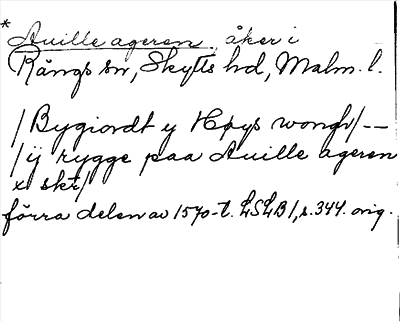 * Auille ageren, åker i
Rängs sn, Skytts hd, Malm. l.
/Bygiordt y Høys wongh/--
/ij rygge paa Auille ageren
x skt/
förra delen av 1570-t. LSLB1, s. 344. orig.